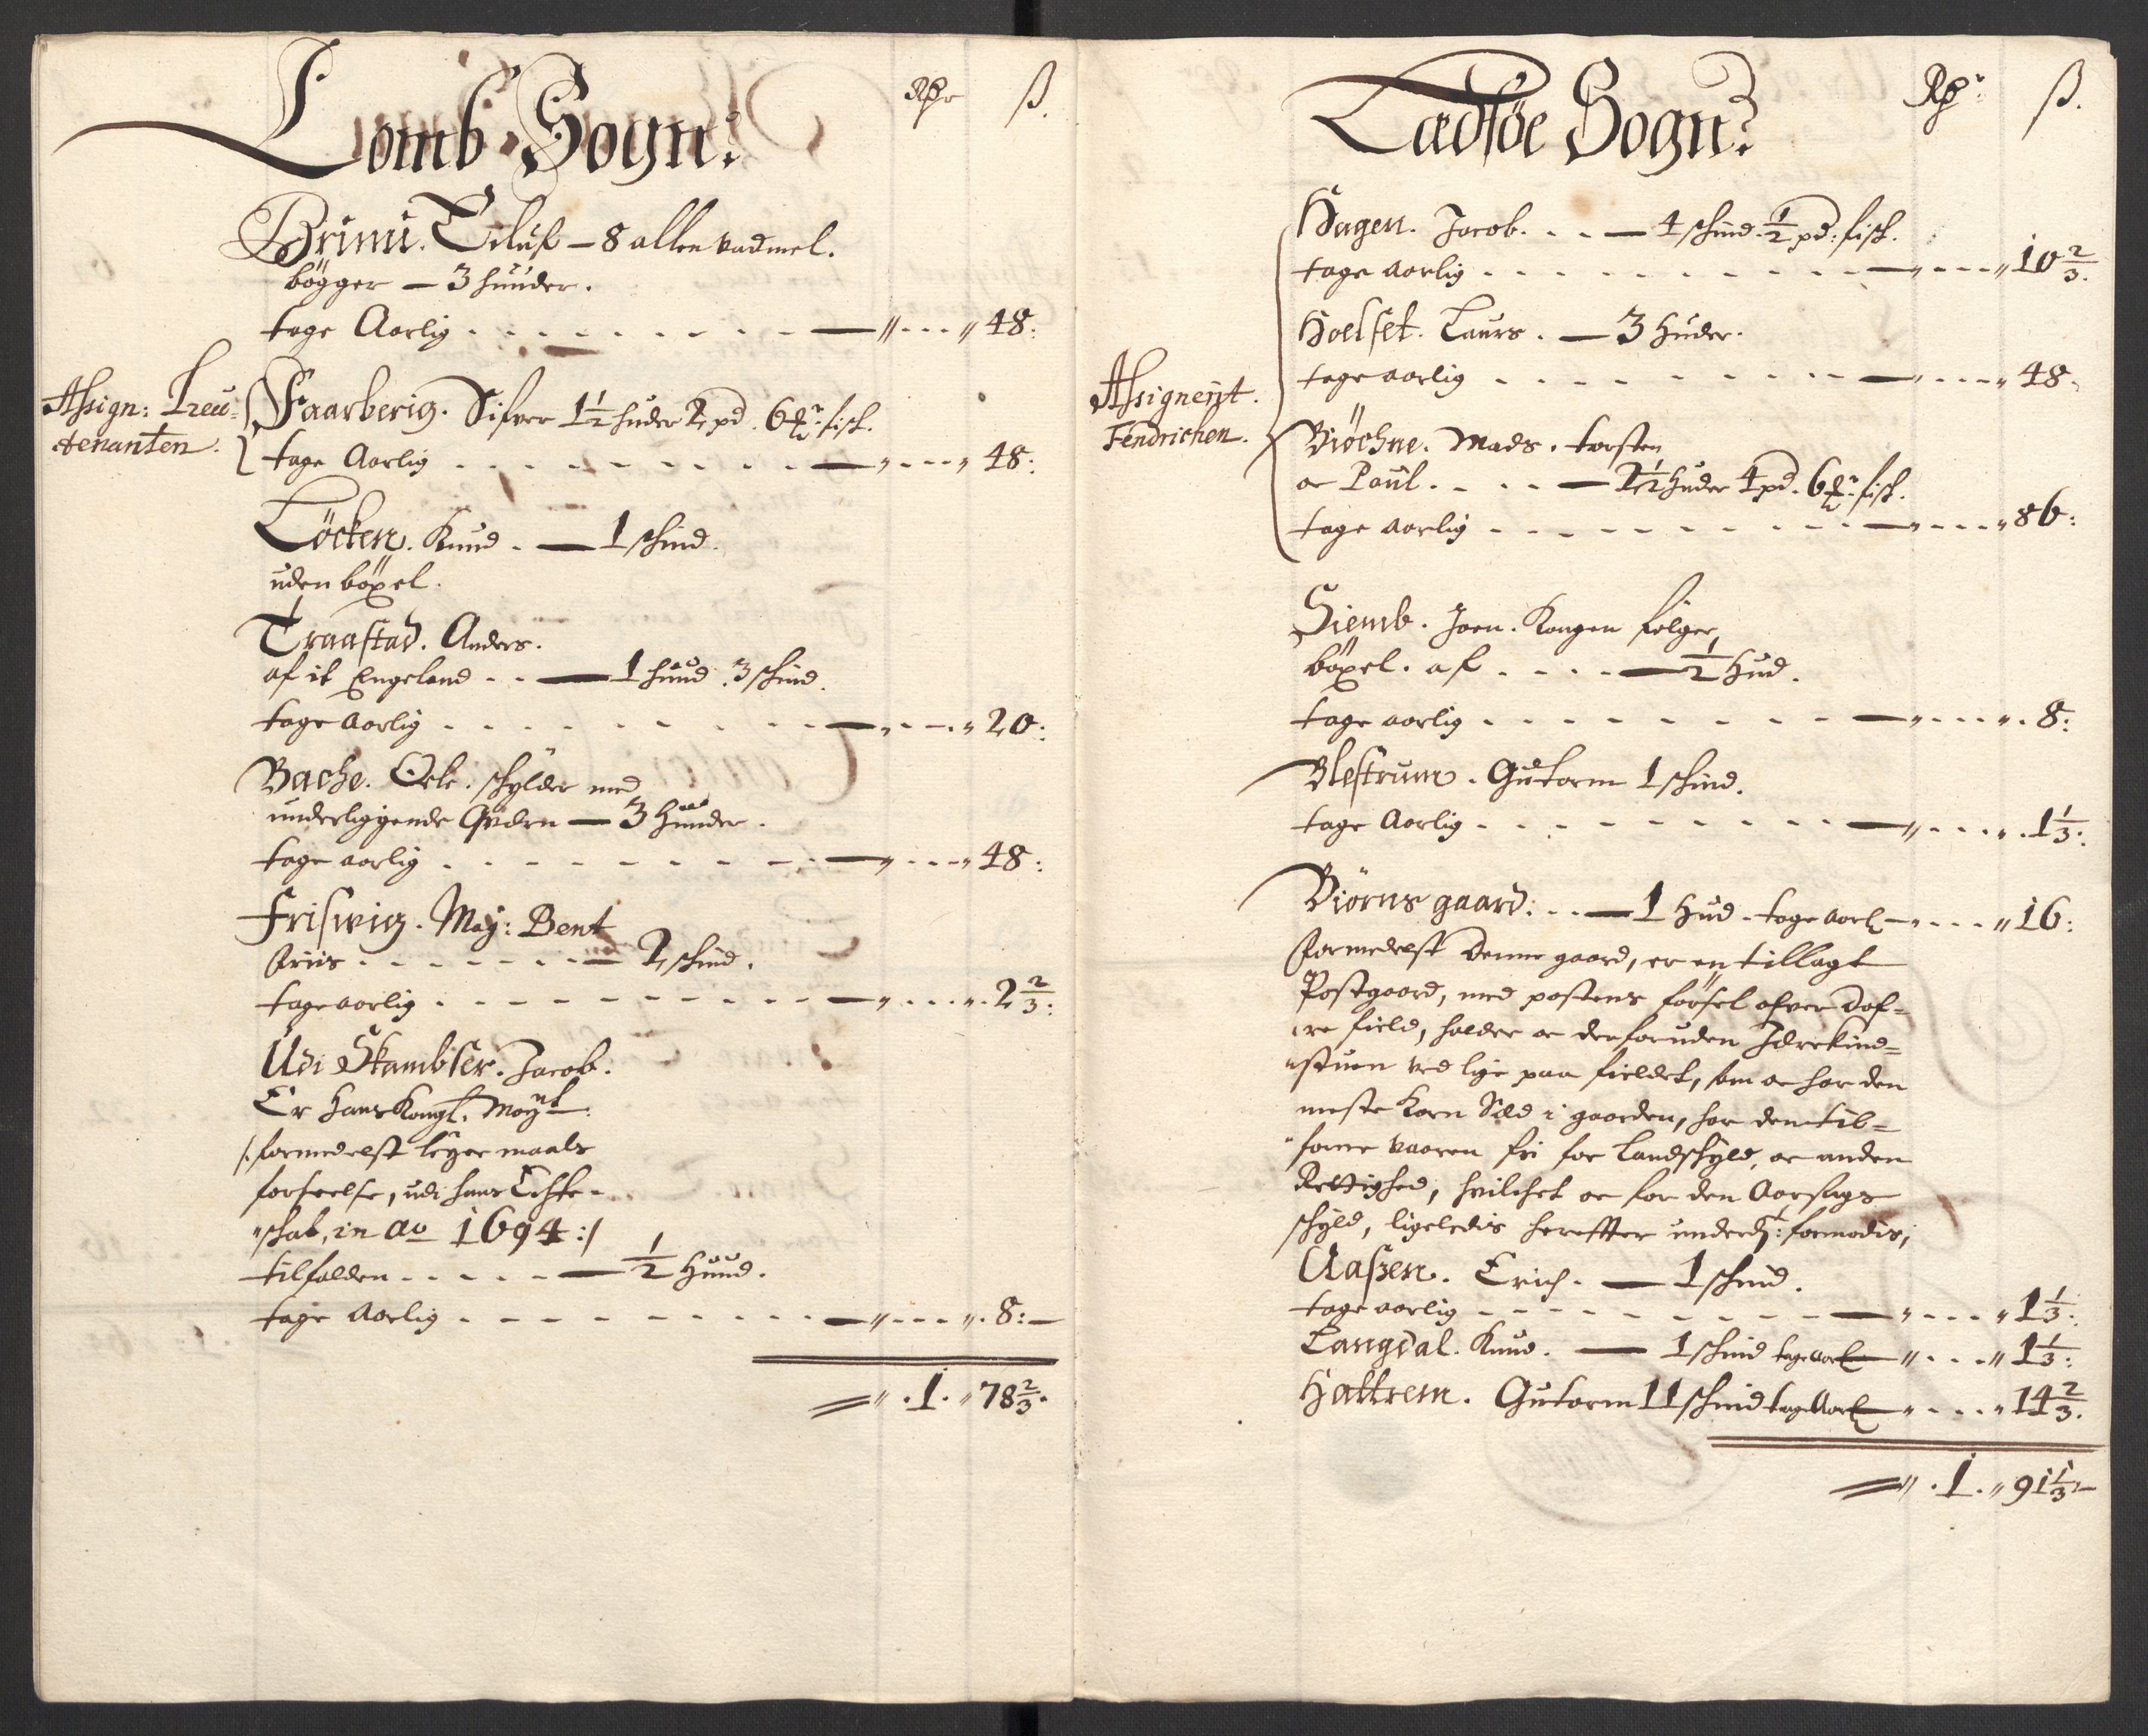 Lomb Sogn:
Rdr ß.
Brimi. Eiluf — 8 allen vadmel.
bögger — 3 huuder.
tage Aarlig . . . — " . . . " 48:
Assign: Lieu=
tenanten.
Faarberig. Sifver 1½ huder 2 pd. 6 mr: fisk.
tage Aarlig . . . — " . . . " 48:
Löcken. Knud. — 1 skind.
uden böxel.
Traastad. Anders.
af it Engeland . . — 1 huud 3 skind.
tage aarlig . . . — " . . . " 20:
Bache. Ole. skylder med
underliggende Qværn — 3 huuder.
tage aarlig . . . — " . . . " 48:
Friswig. May: Bent
Friis . . . — 2 skind.
tage aarlig . . . — " . . . " 2⅔:
Udi Skambser. Jacob.
Er Hans Kongl. Mayt.
/: formedelst leyermaals
forseelse, udi hans Echte-
"skab, in ao 1694 :/
tilfalden . . . — ½ Huud.
tage Aarlig . . . — " . . . " 8:—
" . 1 . " 78⅔.
Ladsöe Sogn:
Rdr ß.
Hagen. Jacob. . . — 4 skind ½ pd: fisk.
tage aarlig . . . — " . . . " 10⅔.
Hoelset. Laurs. — 3 Huder.
tage aarlig . . . — " . . . " 48.
Assigneret.
Fendrichen.
Biöchne. Mads. torsten
oc Poul. . . . — 2½ Huder 4 pd. 6 mr: fisk.
tage aarlig . . . — " . . . " 86:
Siemb. Joen. Kongen fölger
böxel. af . . . — ½ Hud.
tage aarlig . . . — " . . . " 8:
Blestrum. Gutorm 1 skind.
tage Aarlig . . . — " . . . " 1⅓:
Biörnsgaard. . . — 1 Hud. tage aarl — " . . . " 16:
formedelst denne gaard, er en tillagt
Postgaard, med postens förfel ofver Dof=
re field, holder oc der foruden
"stuen ved lige paa fieldet, som oc har den
meste Korn Sæd i gaarden, har den til=
"forne vaaren fri for Landskyld, oc anden
Rettighed, hvilchet oc for den Aarsags
skyld, ligeledis hereffter underd: formodis;
Aaszen. Erich. — 1 skind.
tage aarlig . . . — " . . . " 1⅓:
Langdal. Knud. — 1 skind tage aarl — " . . . " 1⅓:
Hattrem. Gutorm 11 skind tage Aarl — " . . . " 14⅔.
" . 1 . " 91⅓ —